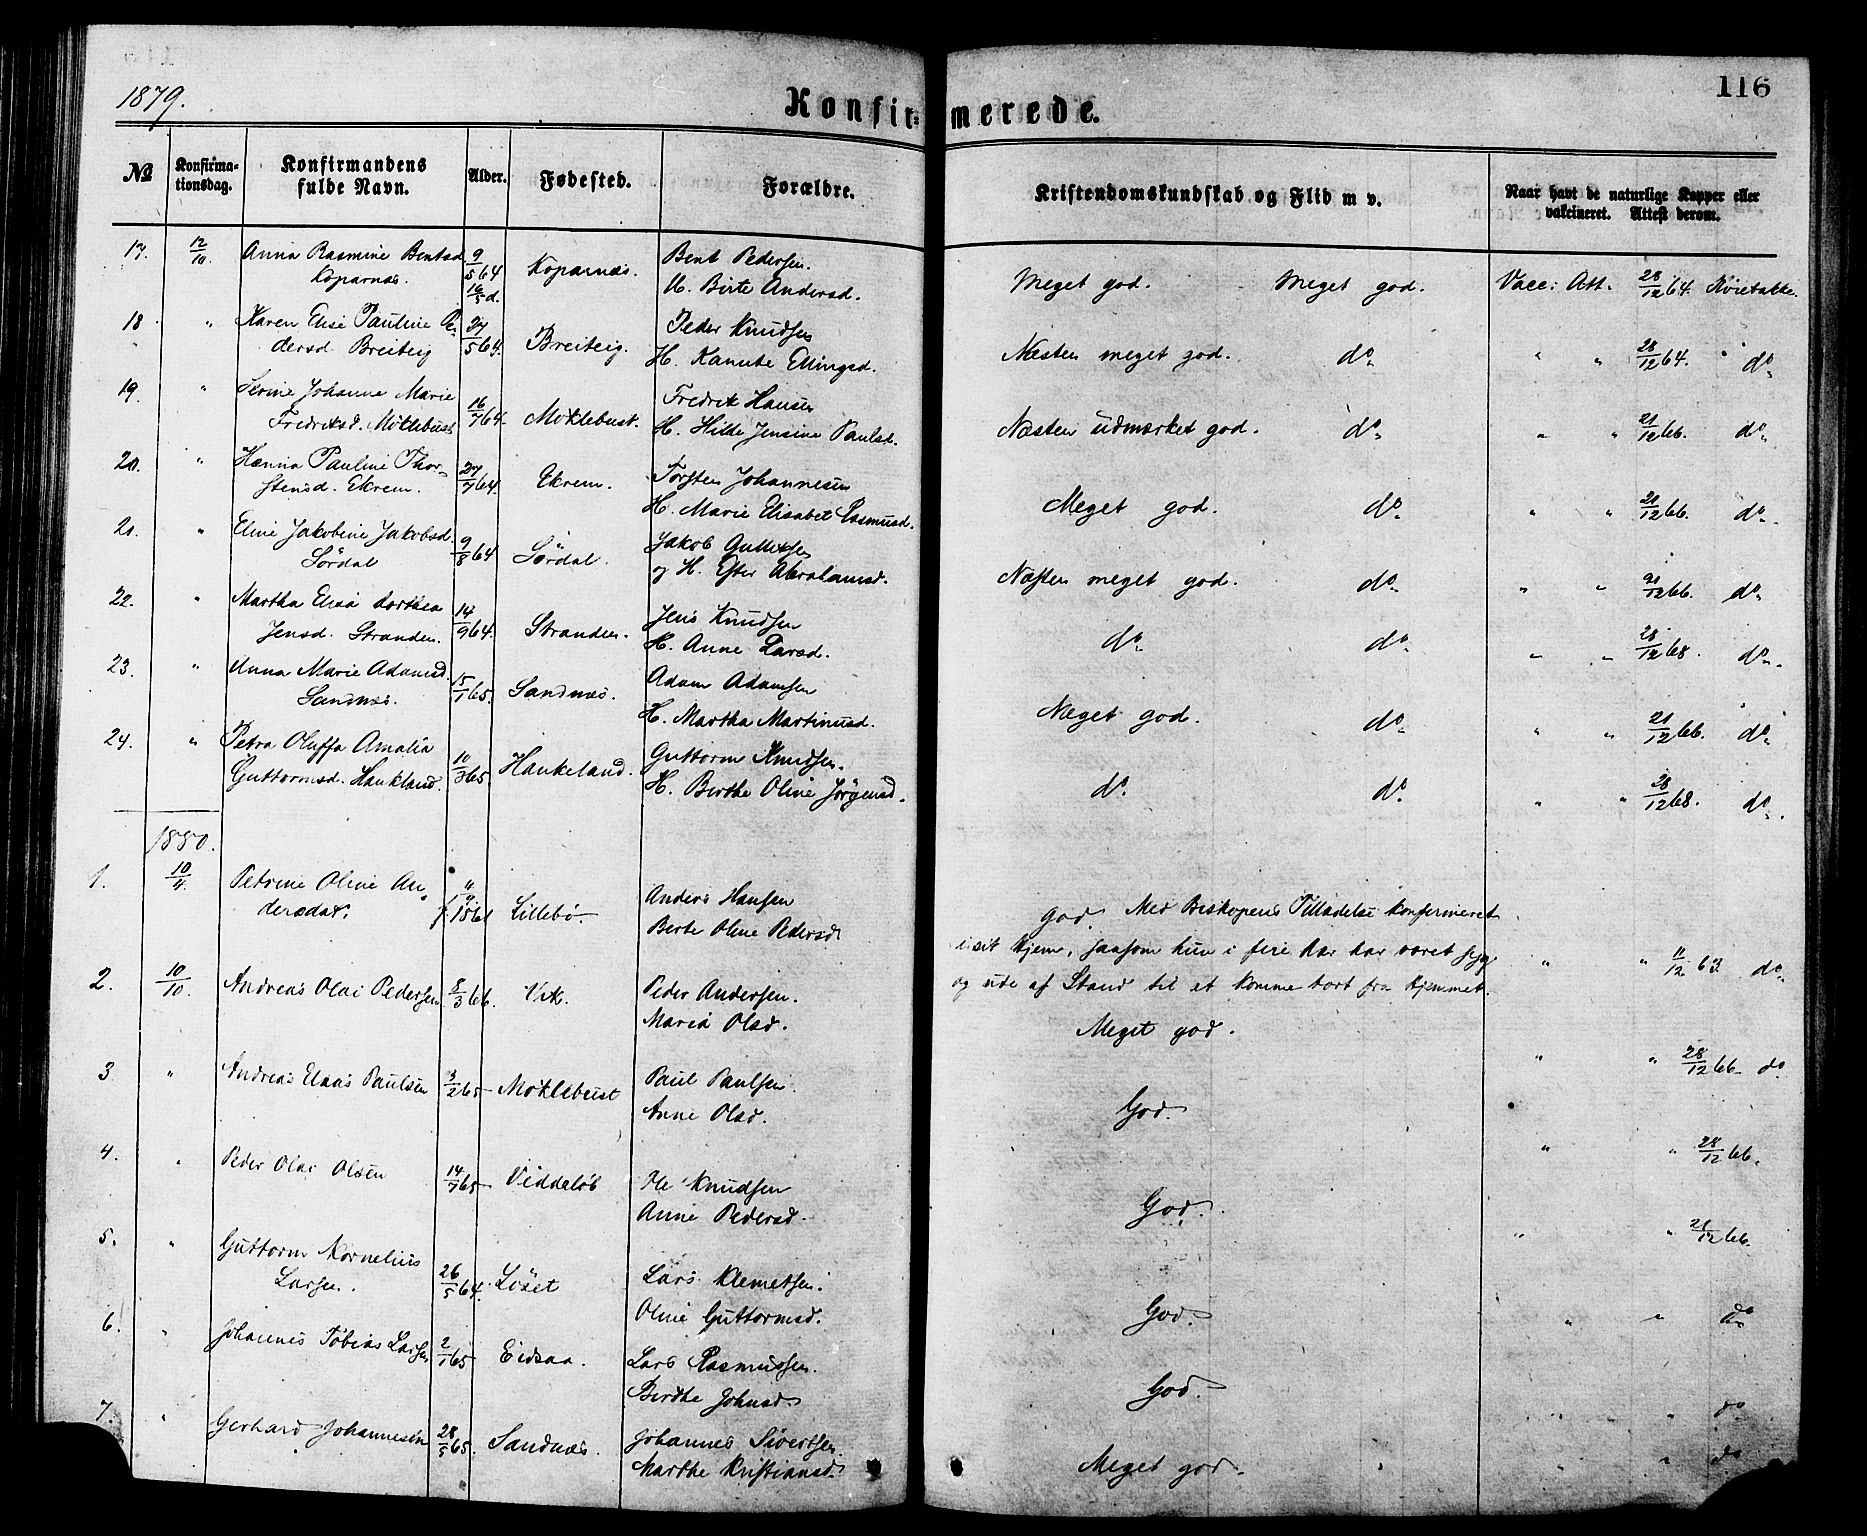 1879.
Konfirmerede.
116
No
Konfirma-
tionsdag.
Konfirmandens
fulde Navn.
Alder.
Fødested.
Forældre.
Kristendomskundskab og Flid m v.
Naar havt de naturlige Kopper eller
vakcineret. Attest derom.
17. 12/10. Anna Rasmine Bentsd. 9/5 64 Koparnæs. Bent Pedersen.
Koparnæs. 16/5 d. H. Birte Andersd. Meget god. Meget god. Vacc: Att. 28/12 64.
18 " Karen Elise Pauline Pe- 27/5 64. Breiteig. Peder Knudsen
dersd. Breiteig H. Kanute Ellingsd. Næsten meget god. do " " 28/12 64. " do
19. " Serine Johanne Marie 16/7 64 Møklebust. Fredrik Hansen
Fredriksd. Møklebust H. Hilde Jensine Paulsd. Næsten udmærket god. do " " 21/12 66. do
20. " Hanna Pauline Thor- 27/7 64. Ekrem. Torsten Johannesen
stensd. Ekrem. H. Marie Elisabet Rasmusd. Meget god. do " " 21/12 66. do
21. " Eline Jakobine Jakobsd. 9/8 64 Sørdal. Jakob
Sørdal og H. Ester Abrahamsd. Næsten meget god. do " " 21/12 66. do
22. " Martha Elisa Dorthea 14/9 64. Stranden. Jens Knudsen
Jensd. Stranden. H. Anne Larsd. do do " " 28/12 68. do
23. " Anna Marie Adamsd. 15/1 65. Sandnæs. Adam Adamsen
Sandnæs. H. Martha Martinusd. Meget god. do " " 21/12 66. do
24. " Petra Oluffa Amalia 10/3 65 Hankeland. Guttorm Knudsen.
Guttormsd. Hankland. H. Birthe Oline Jørgensd. do do " " 28/12 68. do
1880.
1. 10/4. Petrine Oline An- Lillebø. Anders Hansen
dersdat. Berte Oline Pedersd
god. Med Biskopens Tilladelse konfirmeret
i sit Hjem, saasom hun i fire Aar har været syg
og ude af Stand til at komme bort fra Hjemmet. " " 11/12 63. do
2. 10/10. Andreas Olai Pedersen 8/3 66. Vik. Peder Andersen.
Maria Olsd. Meget god. " " 28/12 66 do
3. " Andreas Elias Paulsen 3/2 65 Møklebust Paul Paulsen.
Anne Olsd. God. " " 28/12 66.
4. " Peder Olai Olsen 14/7 65 Viddeløb Ole Knudsen
Anne Pedersd. God. " " 21/12 66.
5. " Guttorm Kornelius 26/5 64. Løset Lars Klemetsen.
Larsen. Oline Guttormsd. God. " " do
6. " Johannes Tobias Larsen 2/1 65 Eidsaa. Lars Rasmussen.
Birthe Johnsd. God. " " do
7. " Gerhard Johannesen 28/5 65. Sandnæs. Johannes Sivertsen.
Marthe Kristiansd. Meget god. " " do